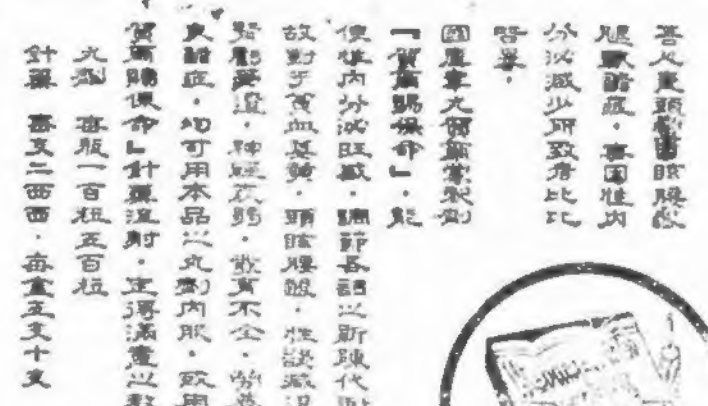 普人患頭眩腰酸
腿軟諸症,專因性內
分泌減少所致者比比
皆是,
國產睾丸荷爾蒙製劑
『賀爾賜保命』,能
使性内分泌旺盛,調節各部之新陳代謝
故對于貧血萎黃,頭眩腰酸,性慾減退
腎虧夢遺,神經衰弱,發育不全,
衰諸症,均可用本品之丸劑内服,或用
賀爾賜保命』針藥注射,定得滿意之效
丸劑 每瓶一百粒五百粒
針藥 每支二西西,每盒五支十支